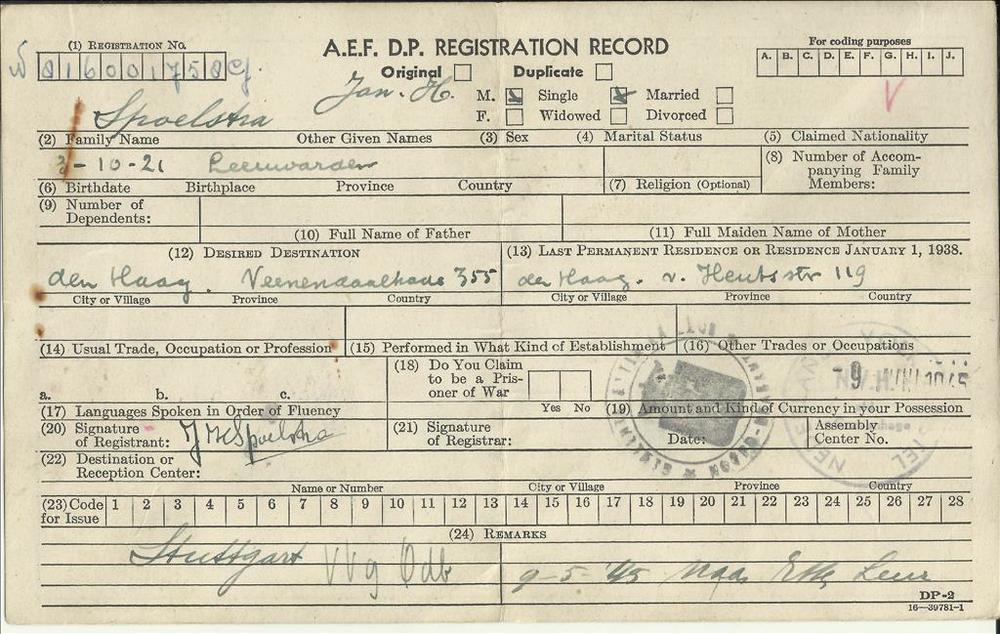 (1) REGISTRATION NO. A.E.F. D.P. REGISTRATION RECORD For coding purposes
Original Duplicate A. B. C. D. E. F. G. H. I. J.
Jan. H. M. Single Married V
Spoelstra F. Widowed Divorced
(2) Family Name Other Given Names (3) Sex (4) Marital Status (5) Claimed Nationality
-10-21 Leeuwarden (8) Number of Accompanying Family Members:
(6) Birthdate Birthplace Province Country (7) Religion (Optional)
(9) Number of Dependents:
(10) Full Name of Father (11) Full Maiden Name of Mother
(12) DESIRED DESTINATION (13) LAST PERMANENT RESIDENCE OR RESIDENCE JANUARY 1, 1938.
den Haag. 355 den Haag. v. Heutsstr 119
City or Village Province Country City or Village Province Country
(14) Usual Trade, Occupation or Profession (15) Performed in What Kind of Establishment (16) Other Trades or Occupations
(18) Do You Claim to be a Prisoner of War
a. b. c. Yes No
(17) Languages Spoken in Order of Fluency (19) Amount and Kind of Currency in your Possession
(20) Signature of Registrant: JHSpoelstra (21) Signature of Registrar: Date: Assembly Center No.
(22) Destination or Reception Center:
Name or Number City or Village Province Country
(23) Code for Issue 1 2 3 4 5 6 7 8 9 10 11 12 13 14 15 16 17 18 19 20 21 22 23 24 25 26 27 28
(24) REMARKS
Stuttgart 9-5-'45
DP-2
16—39781-1